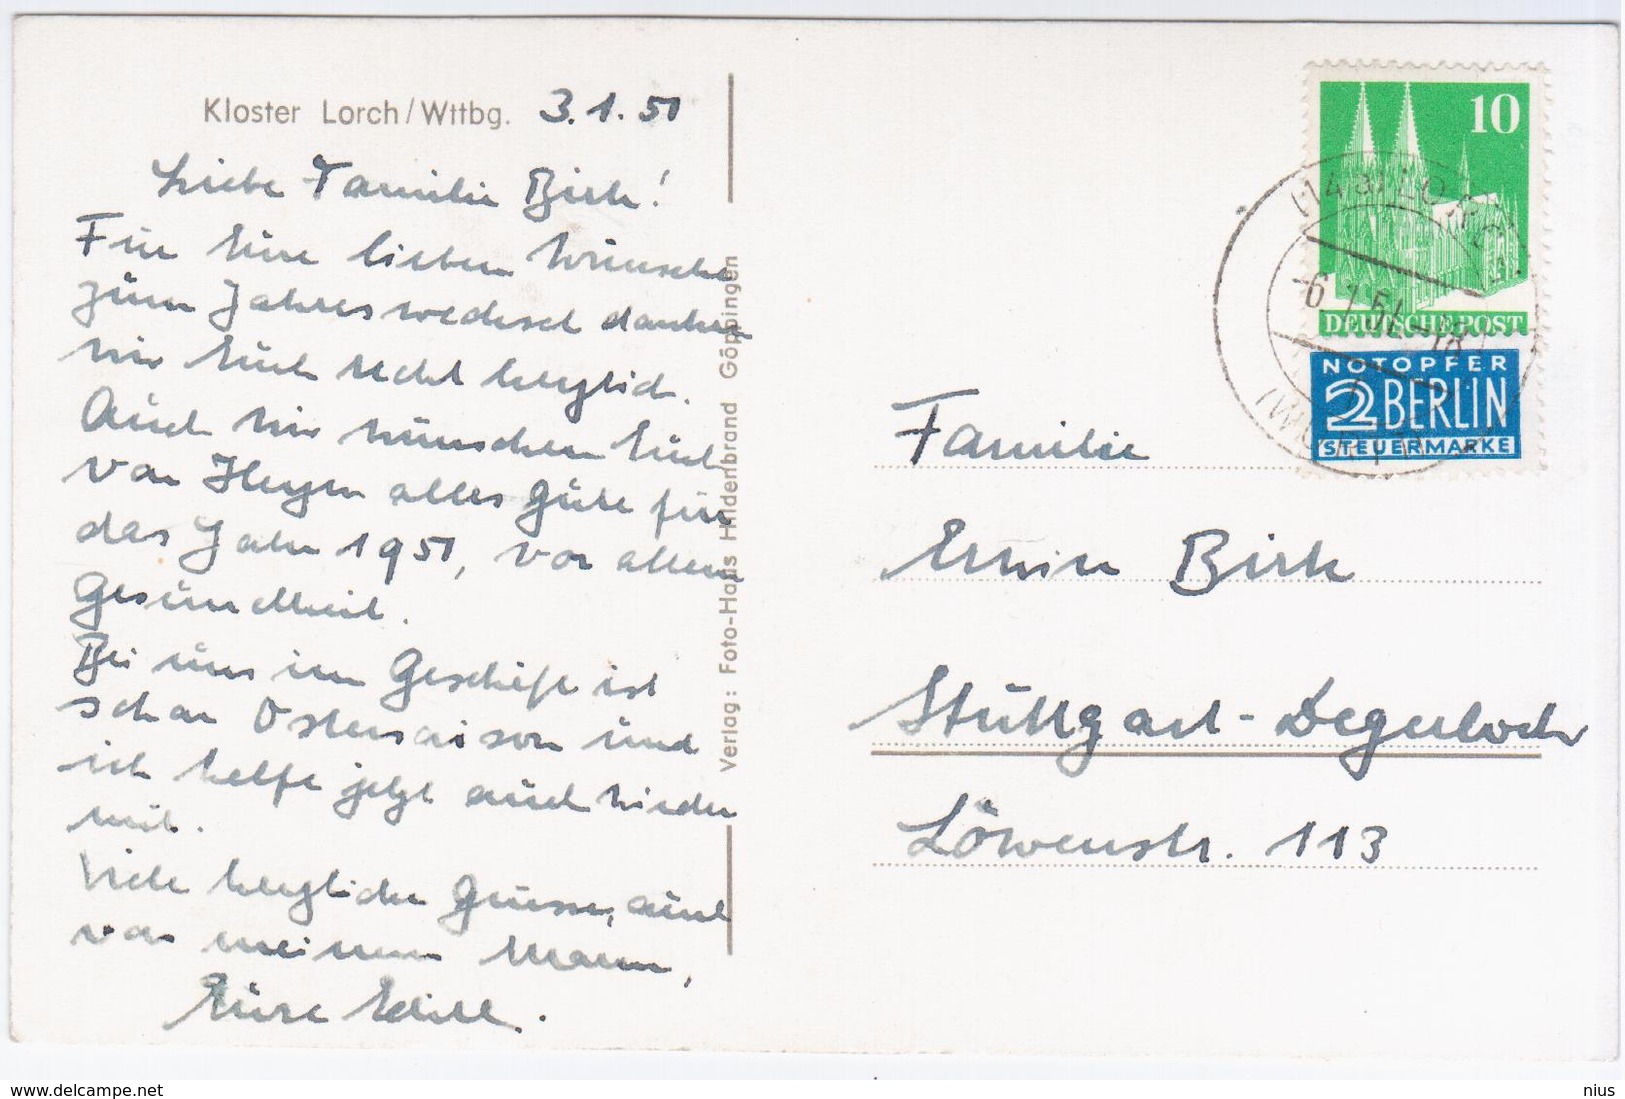 Kloster Lorch/Wttbg. 3.1.51
Liebe Familie Birk!
Für Eure lieben Wünsche
zum Jahreswechsel danken
wir Euch recht herzlich.
Auch wir wünschen Euch
von Herzen alles Gute für
das Jahr 1951, vor allem
Gesundheit.
Bei uns im Geschäft ist
schon Ostersaison und
ich helfe jetzt auch wieder
mit.
Viele herzliche Grüsse, auch
von meinem Mann,
Eure Edith.
Verlag: Foto-Haus Hildenbrand Göppingen
10
DEUTSCHE POST
NOTOPFER
2 BERLIN
STEUERMARKE
(14a) LORCH
-6.1.51.-18
(WÜRTT)
Familie
Erwin Birk
Stuttgart-Degerloch
Löwenstr. 113
delcampe.net
nius